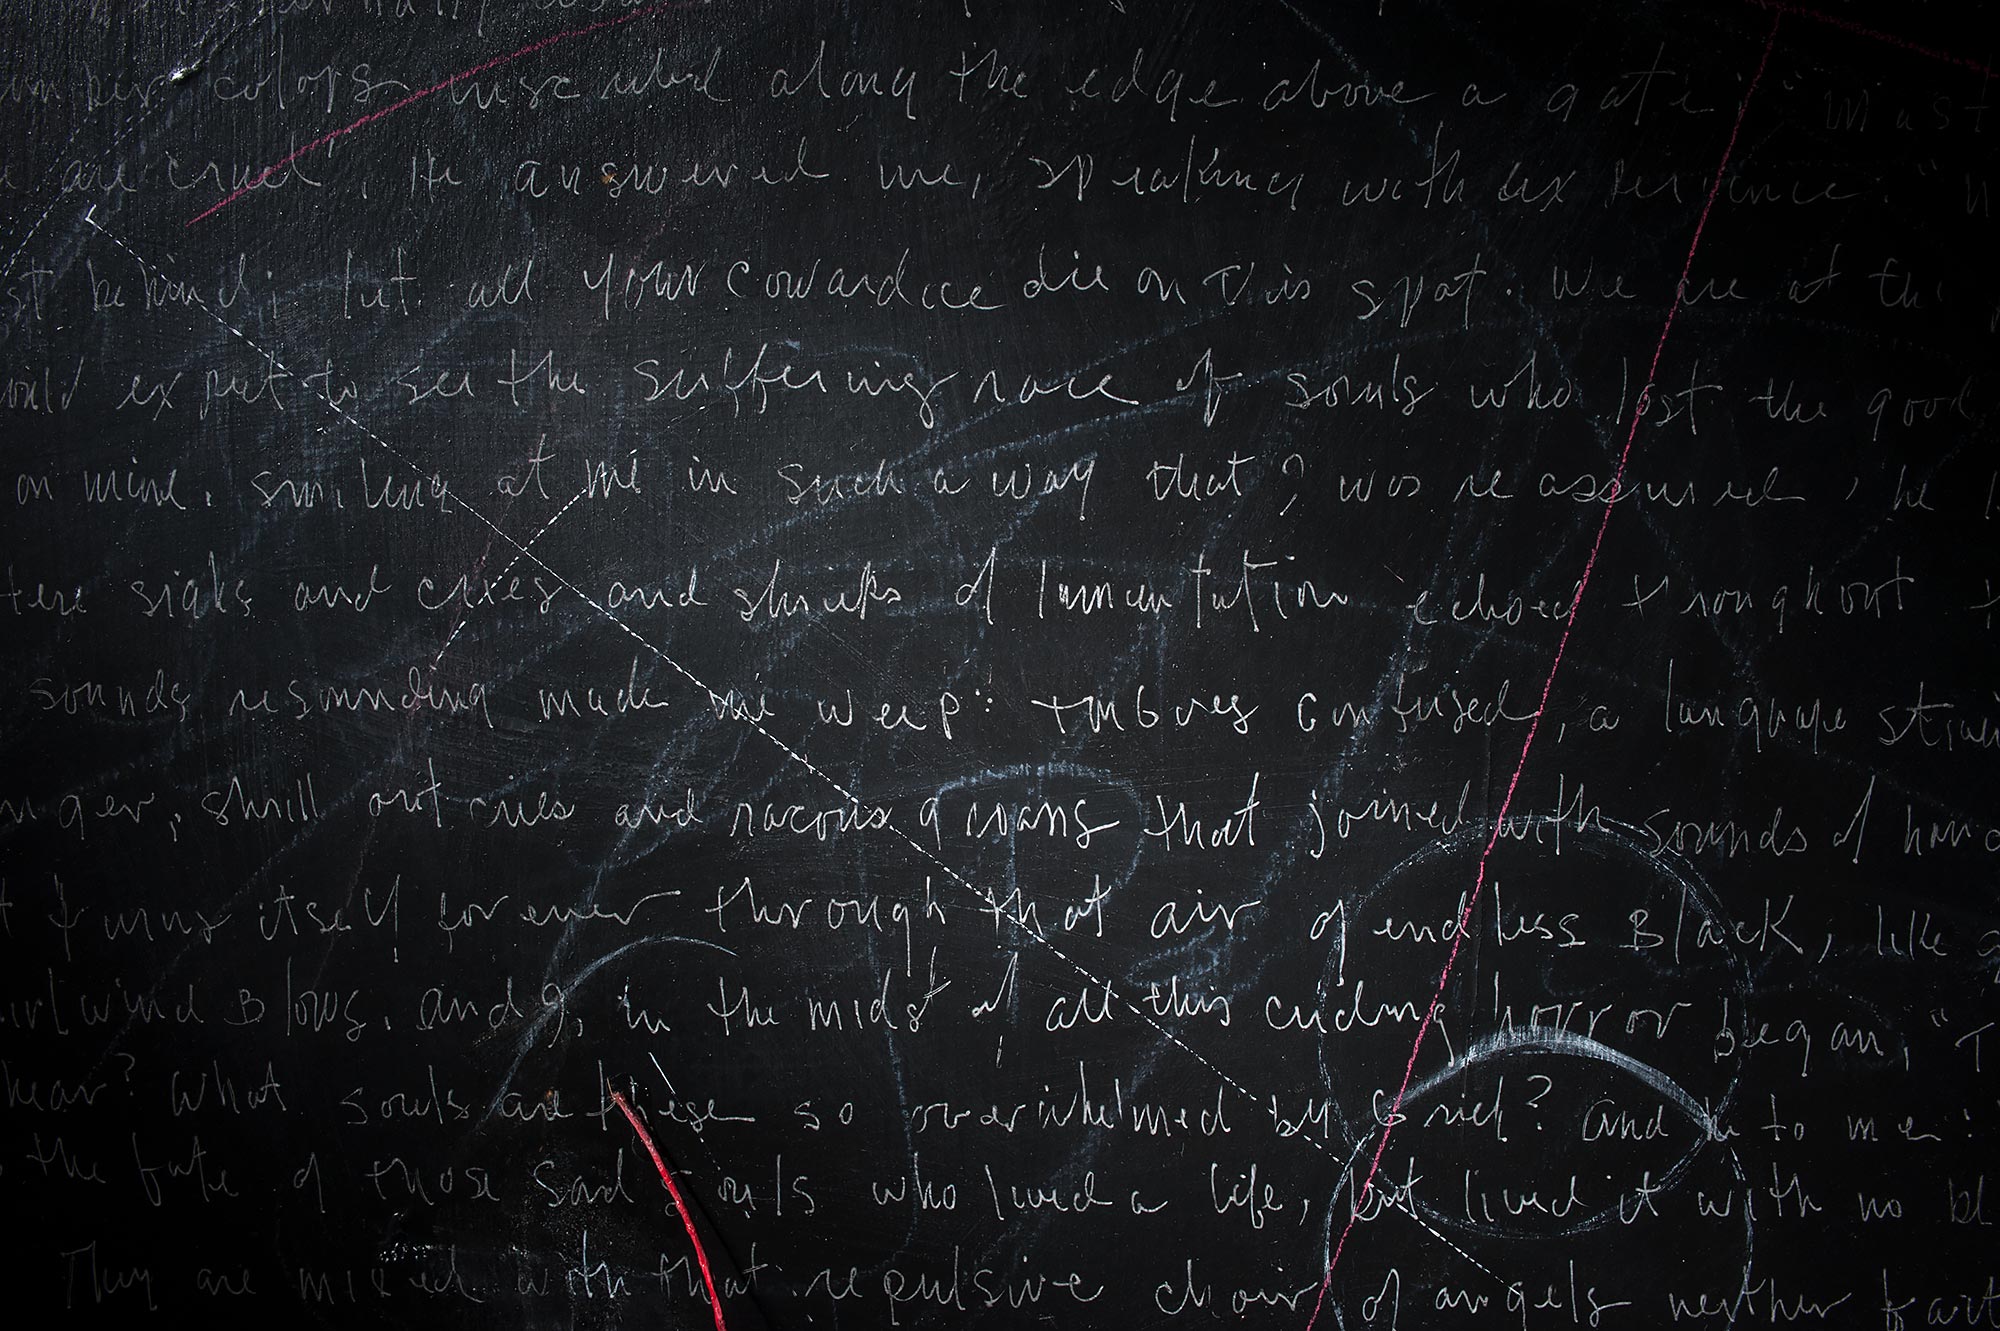 colors inscribed along the edge above a gate "Mast
are cruel". He answered me, speaking with experience: "
st behind; let all your cowardice die on this spot. We are at the
ould expect to see the suffering race of souls who lost the good
on mine. smiling at me in such a way that I was reassured, he
Here sighs and cries and shrieks of lamentation echoed throughout
sounds resounding made me weep: tongues confused, a language strain
nger, shrill outcries and racous groans that joined with sounds of hand
turns itself forever through that air of endless Black, like
irlwind Blows. and I, in the midst of all this circling horror began, "T
hear? What souls are these so overwhelmed by Grief? and he to me:
the fate of those sad souls who lived a life, but lived it with no bl
They are mixed with that repulsive choir of angels neither fait